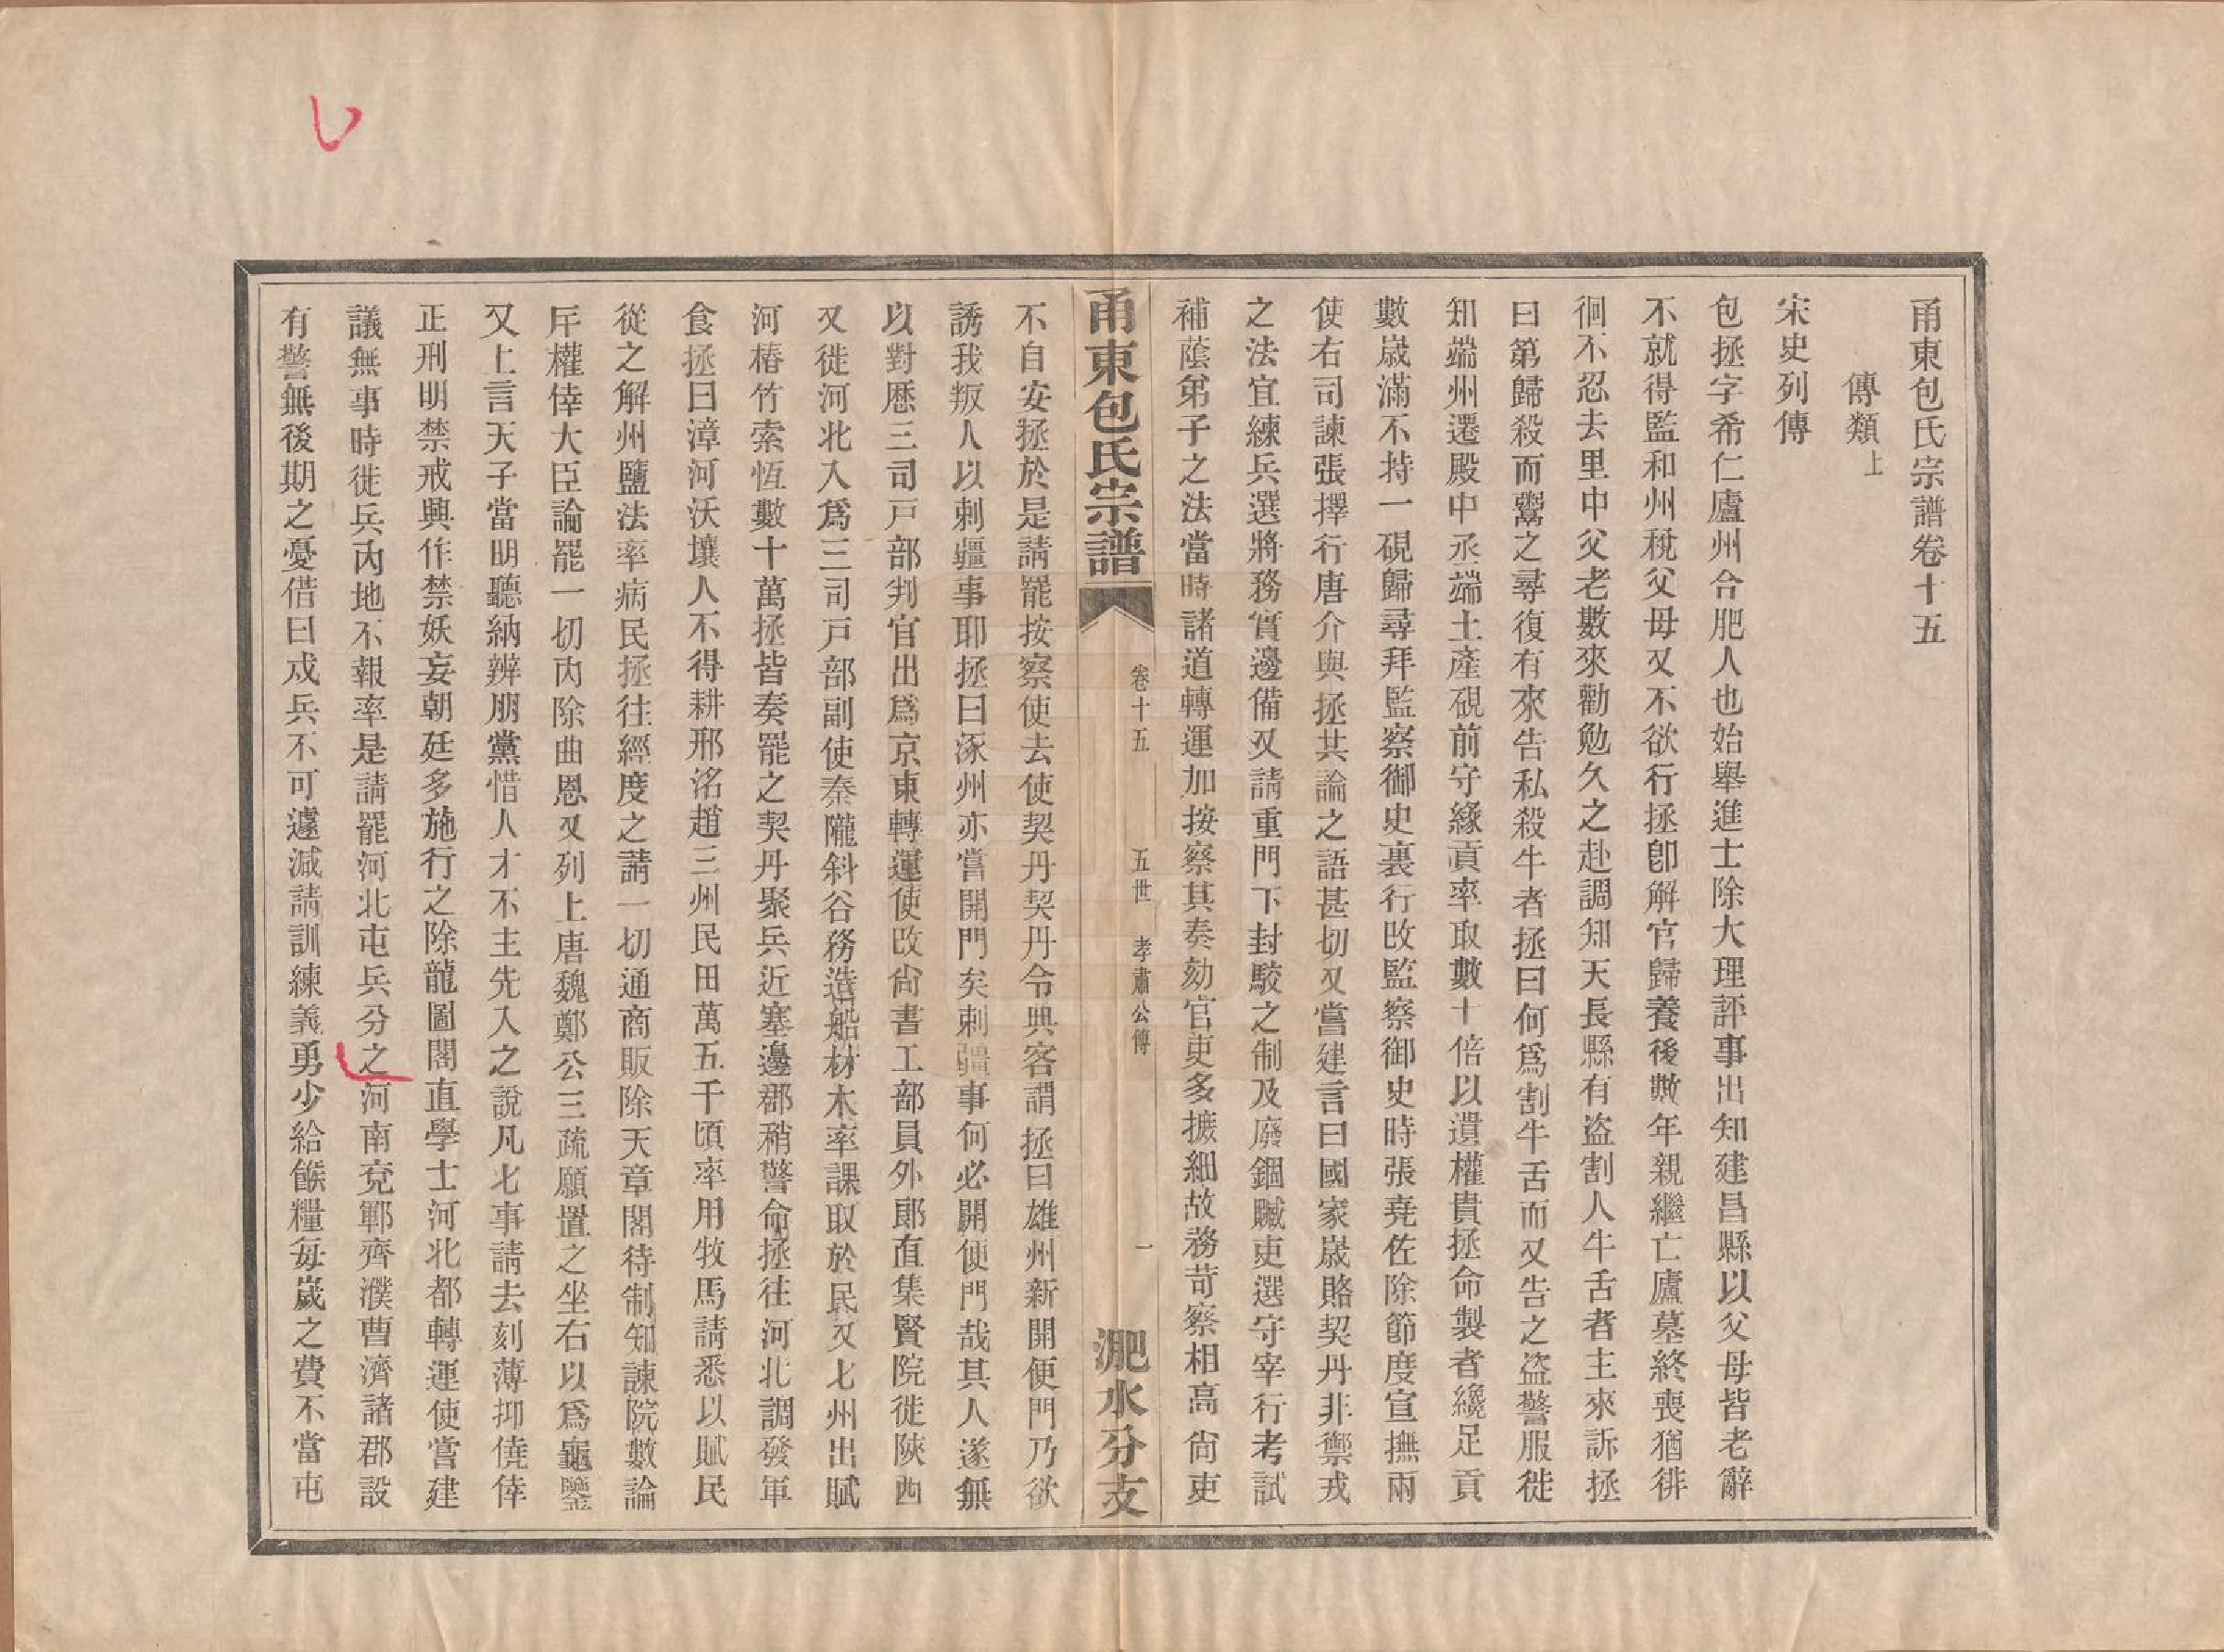 甬東包氏宗譜卷十五
傳類上
宋史列傳
包拯字希仁廬州合肥人也始舉進士除大理評事出知建昌縣以父母皆老辭
不就得監和州稅父母又不欲行拯卽解官歸養後數年親繼亡廬墓終喪猶徘
徊不忍去里中父老數來勸勉久之赴調知天長縣有盜割人牛舌者主來訴拯
曰第歸殺而鬻之尋復有來告私殺牛者拯曰何爲割牛舌而又告之盜警服徙
知端州遷殿中丞端土產硯前守緣貢率取數十倍以遺權貴拯命製者纔足貢
數歲滿不持一硯歸尋拜監察御史裏行改監察御史時張堯佐除節度宣撫兩
使右司諫張擇行唐介與拯共論之語甚切又嘗建言曰國家歲賂契丹非禦戎
之法宜練兵選將務實邊備又請重門下封駮之制及廢錮贓吏選守宰行考試
補蔭弟子之法當時諸道轉運加按察其奏劾官吏多摭細故務苛察相高尙吏
甬東包氏宗譜
卷十五
五世
孝肅公傳
一
淝水分支
不自安拯於是請罷按察使去使契丹契丹令典客謂拯曰雄州新開便門乃欲
誘我叛人以刺疆事耶拯曰涿州亦嘗開門矣刺疆事何必開便門哉其人遂無
以對歷三司戸部判官出爲京東轉運使改尙書工部員外郎直集賢院徙陝西
又徙河北入爲三司戸部副使秦隴斜谷務造船材木率課取於民又七州出賦
河椿竹索恆數十萬拯皆奏罷之契丹聚兵近塞邊郡稍警命拯往河北調發軍
食拯曰漳河沃壤人不得耕邢洺趙三州民田萬五千頃率用牧馬請悉以賦民
從之解州鹽法率病民拯往經度之請一切通商販除天章閣待制知諫院數論
斥權倖大臣論罷一切內除曲恩又列上唐魏鄭公三疏願置之坐右以爲龜鑒
又上言天子當明聽納辨朋黨惜人才不主先入之說凡七事請去刻薄抑僥倖
正刑明禁戒興作禁妖妄朝廷多施行之除龍圖閣直學士河北都轉運使嘗建
議無事時徙兵內地不報率是請罷河北屯兵分之河南兗鄆齊濮曹濟諸郡設
有警無後期之憂借曰戍兵不可遽減請訓練義勇少給餱糧每歲之費不當屯